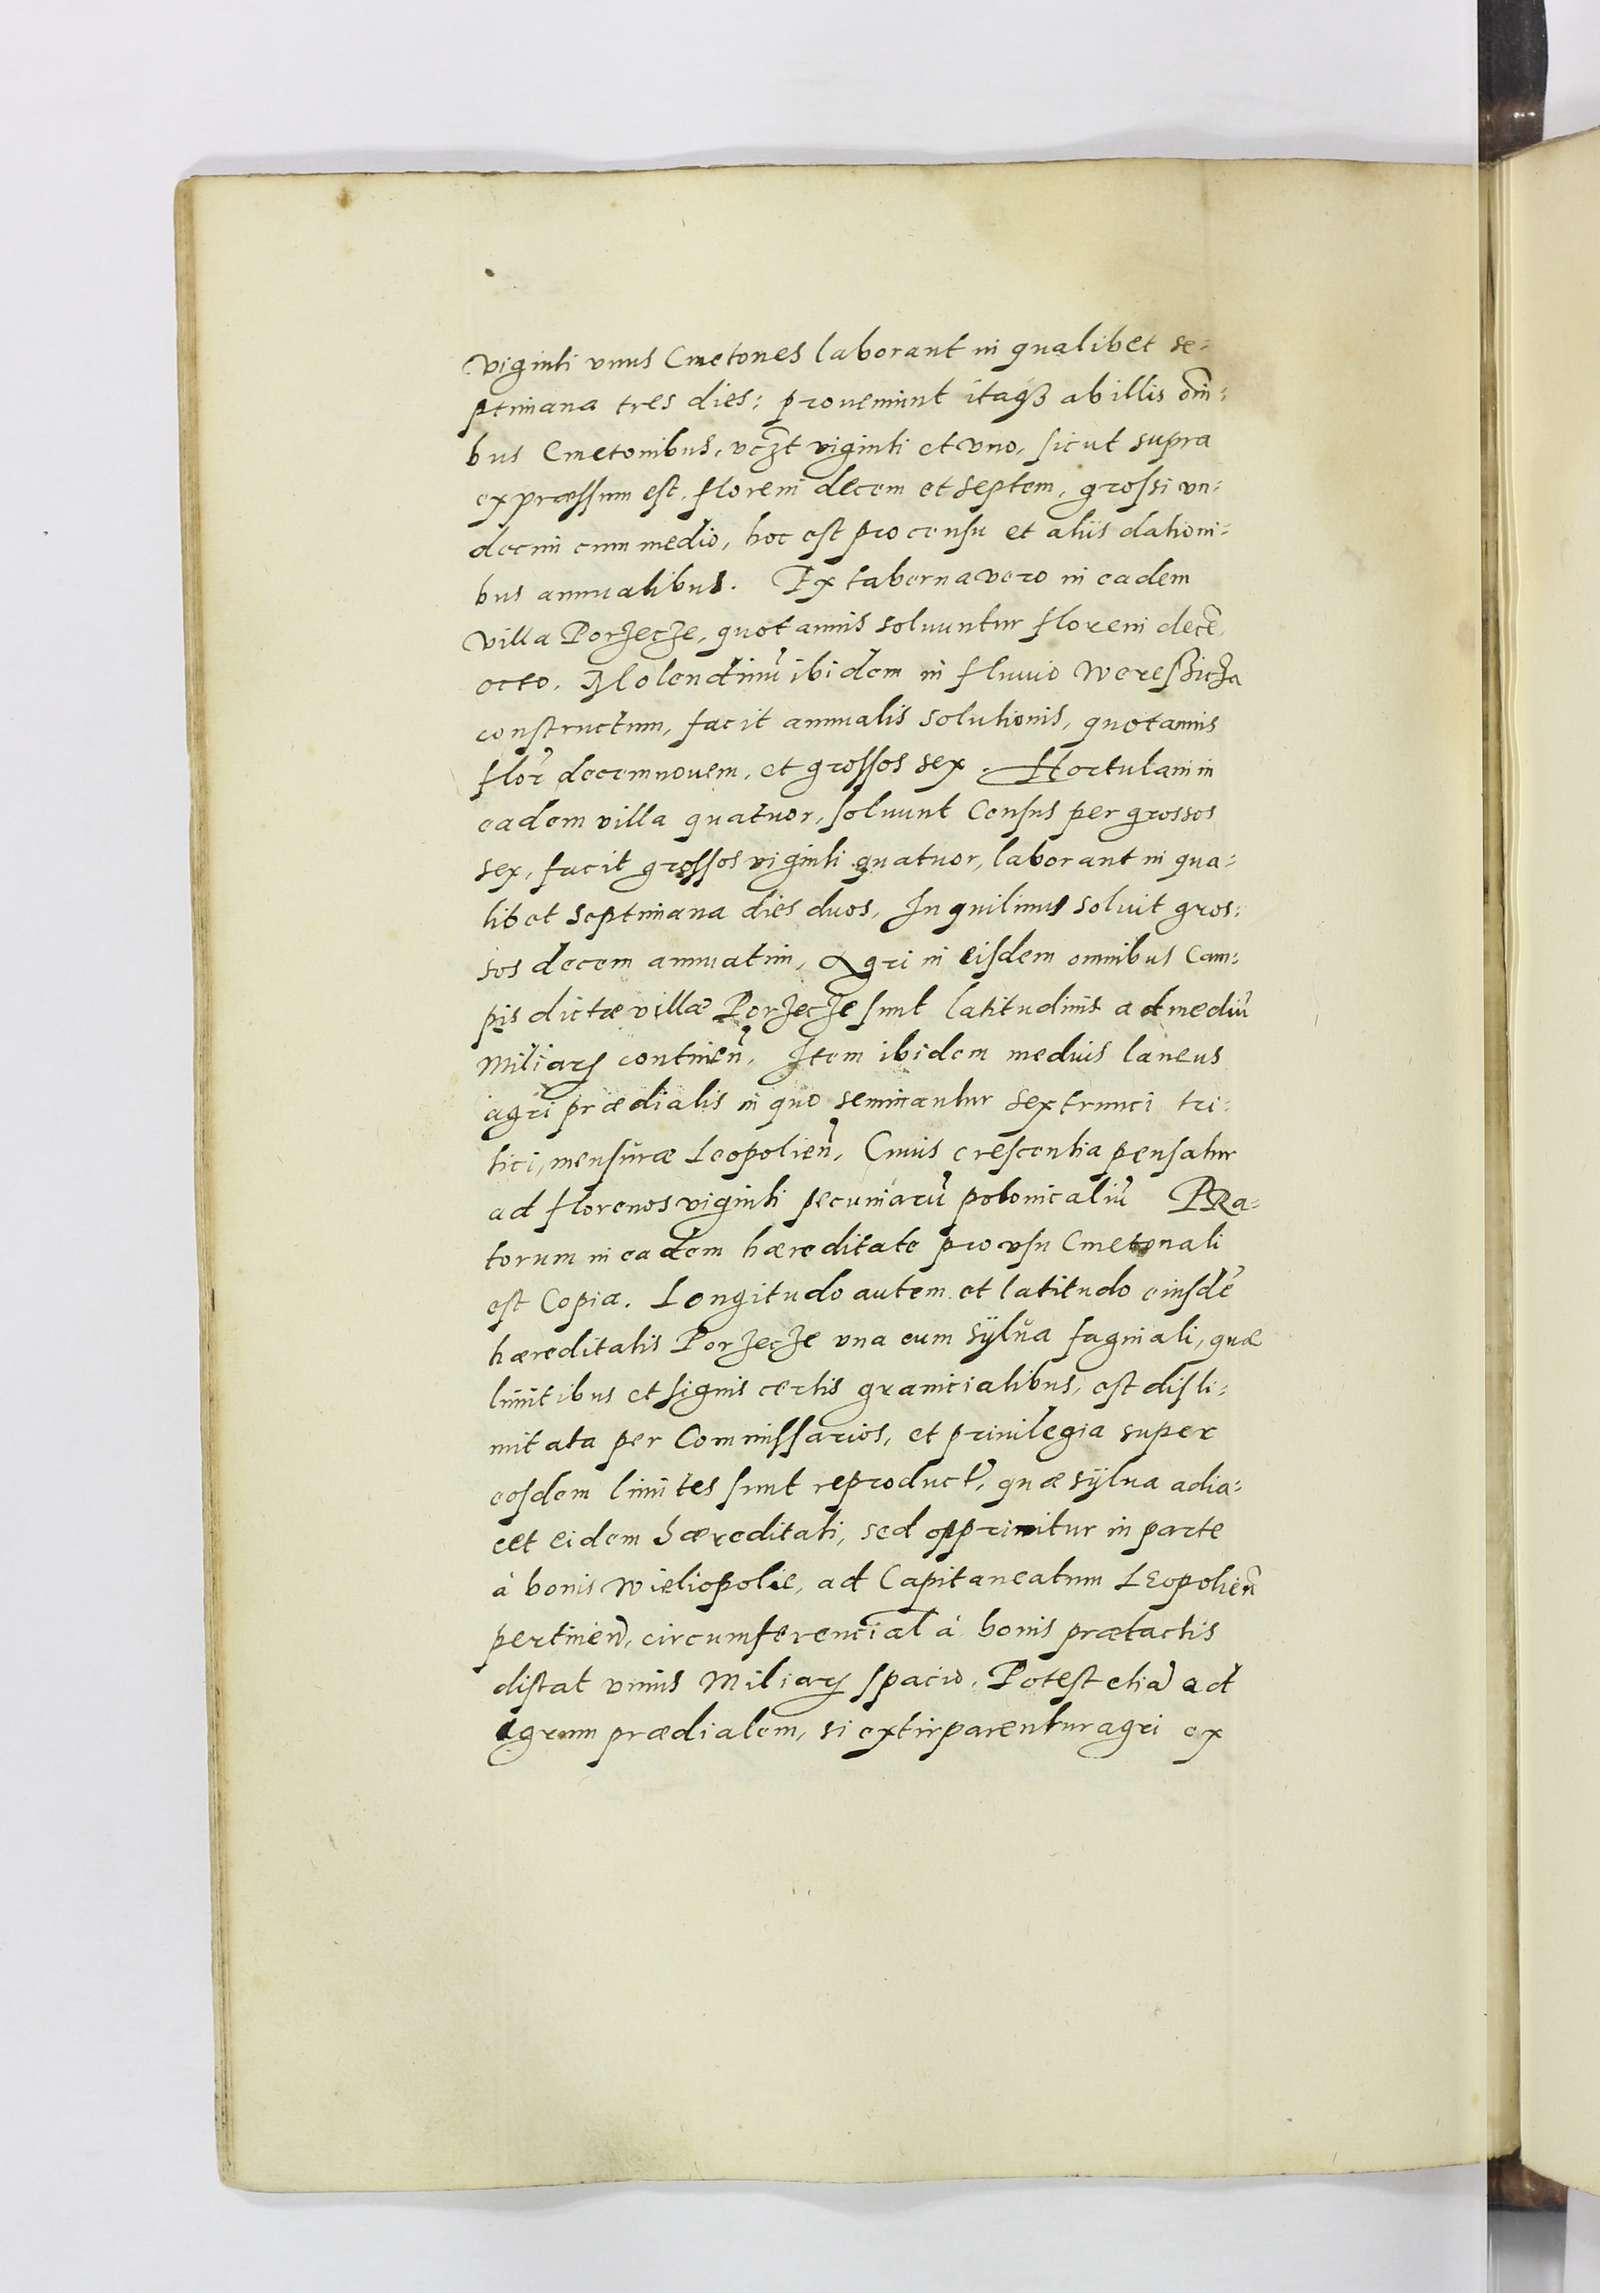 viginti vnus Cmetones laborant in qualibet se-
ptimana tres dies: proueniunt itaqȝ ab illis om̄i-
bus Cmetonibus, vcȝt viginti et vno, sicut supra
expræssum est, floreni decem et septem, grossi vn-
decim cum medio, hoc est pro censu et aliis dationi-
bus annualibus. Ex taberna vero in eadem
villa Porzecze, quotannis soluuntur floreni decē
octo. Molendinū ibidem in fluuio Wereszicza
constructum, facit annualis solutionis, quotannis
flor̄ decemnouem, et grossos sex. Hortulani in
eadem villa quatuor, soluunt Census per grossos
sex, facit grossos viginti quatuor, laborant in qua-
libet septimana dies duos, Inquilinus soluit gros-
sos decem annuatim, Agri in eisdem omnibus Cam-
pis dictæ villæ Porzecze sunt latitudinis ad mediū
Miliarÿ continen̄. Item ibidem medius laneus
agri prædialis in quo seminantur sex trunci tri-
tici, mensuræ Leopolien̄, Cuius crescentia pensatur
ad florenos viginti pecuniarū polonicaliū PRa-
torum in eadem hæreditate pro vsu Cmetonali
est Copia. Longitudo autem et latitudo eiusdē
hæreditatis Porzecze vna cum sÿlua faginali, quæ
limitibus et signis certis granicialibus, est disli-
mitata per Commissarios, et priuilegia super
eosdem limites sunt reproduct̄, quæ sÿlua adia-
cet eidem hæreditati, sed opprimitur in parte
à bonis Wieliopolie, ad Capitaneatum Leopolien̄
pertinen̄, circumferencial à bonis prætactis
distat vnius Miliarÿ spacio. Potest etiā ad
agrum prædialem, si extirparentur agri ex